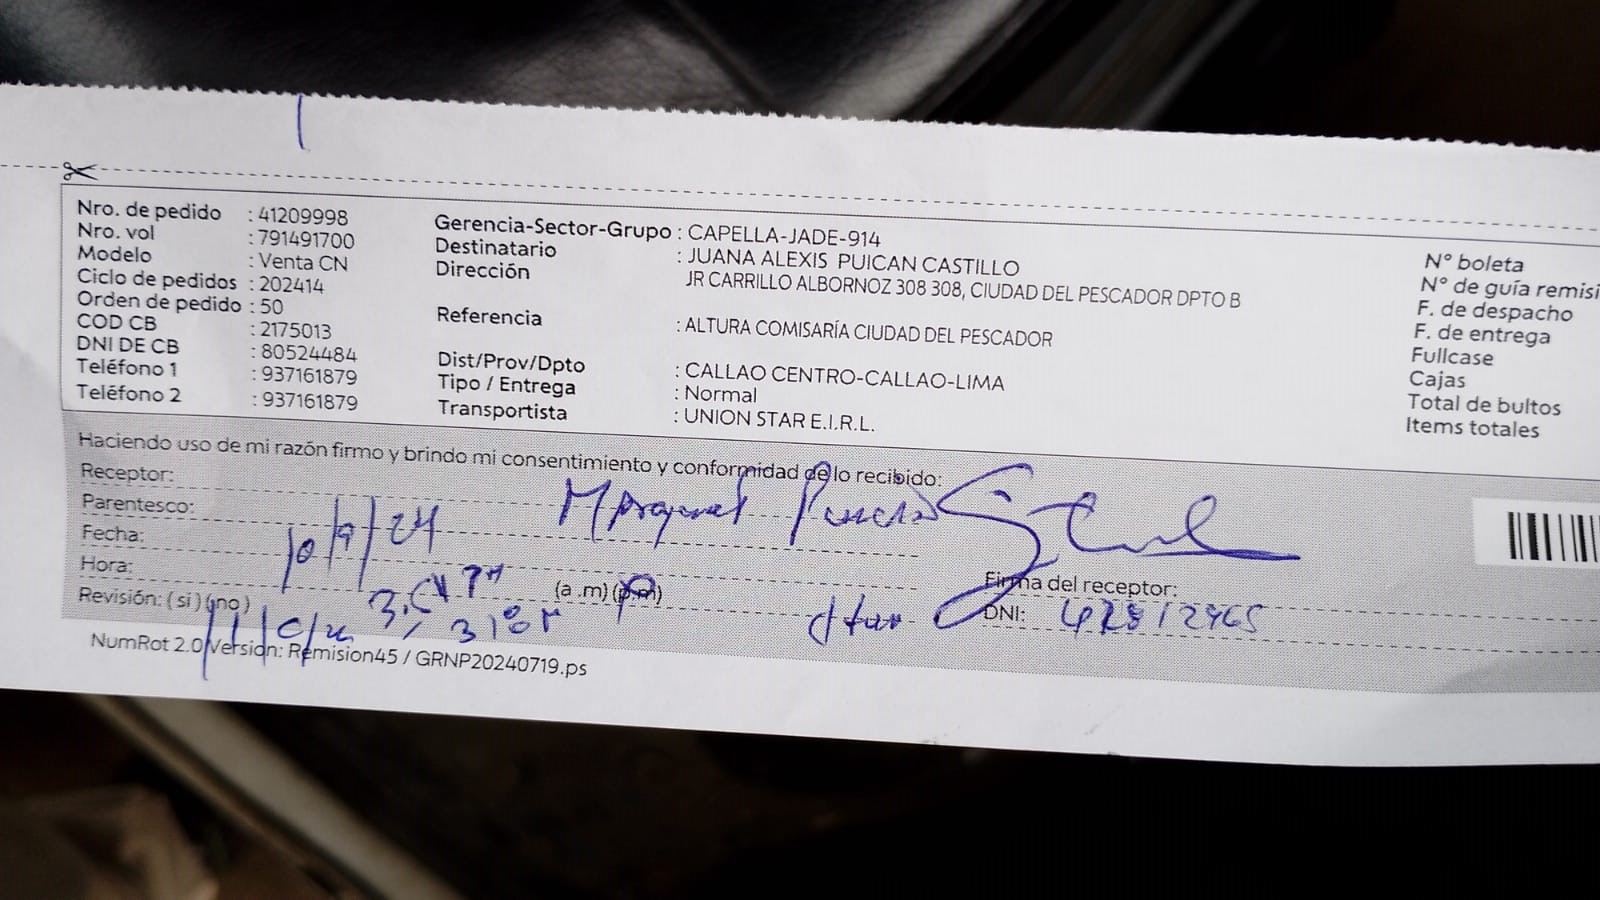 Nro. de pedido : 41209998
Nro. vol : 791491700
Modelo : Venta CN
Ciclo de pedidos : 202414
Orden de pedido : 50
COD CB : 2175013
DNI DE CB : 80524484
Teléfono 1 : 937161879
Teléfono 2 : 937161879
Gerencia-Sector-Grupo : CAPELLA-JADE-914
Destinatario : JUANA ALEXIS PUICAN CASTILLO
Dirección JR CARRILLO ALBORNOZ 308 308, CIUDAD DEL PESCADOR DPTO B
Referencia : ALTURA COMISARÍA CIUDAD DEL PESCADOR
Dist/Prov/Dpto : CALLAO CENTRO-CALLAO-LIMA
Tipo / Entrega : Normal
Transportista : UNION STAR E.I.R.L.
N° boleta
N° de guía remisi
F. de despacho
F. de entrega
Fullcase
Cajas
Total de bultos
Items totales
Haciendo uso de mi razón firmo y brindo mi consentimiento y conformidad de lo recibido:
Receptor:
Parentesco:
Fecha:
Hora: (a .m) (p.m)
Revisión: ( si ) (no )
Firma del receptor:
DNI:
NumRot 2.0 Version: Remision45 / GRNP20240719.ps